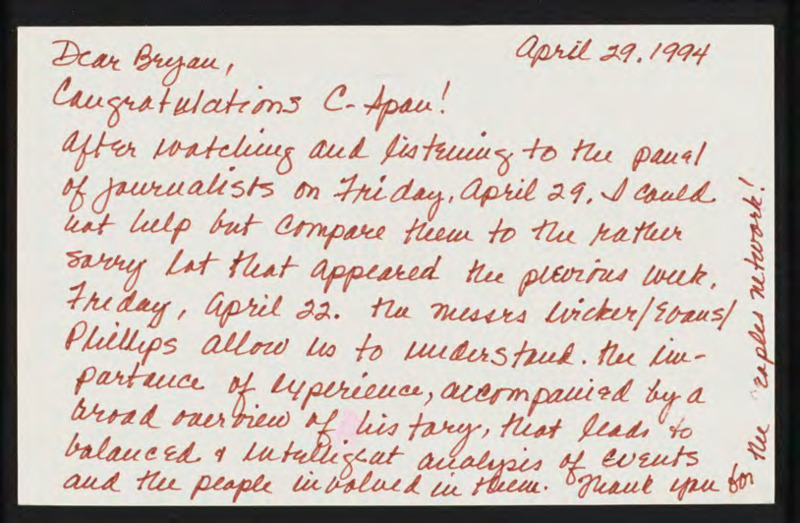 Dear Bryan,
April 29, 1994
Congratulations C-Span!
After watching and listening to the panel
of journalists on Friday, April 29, I could
not help but compare them to the rather
sorry lot that appeared the previous week,
Friday, April 22. The Messrs Wicker/Evans/
Phillips allow us to understand. the im-
portance of experience, accompanied by a
broad overview of history, that leads to
balanced & intelligent analysis of events
and the people involved in them. Thank you for
the peoples network!